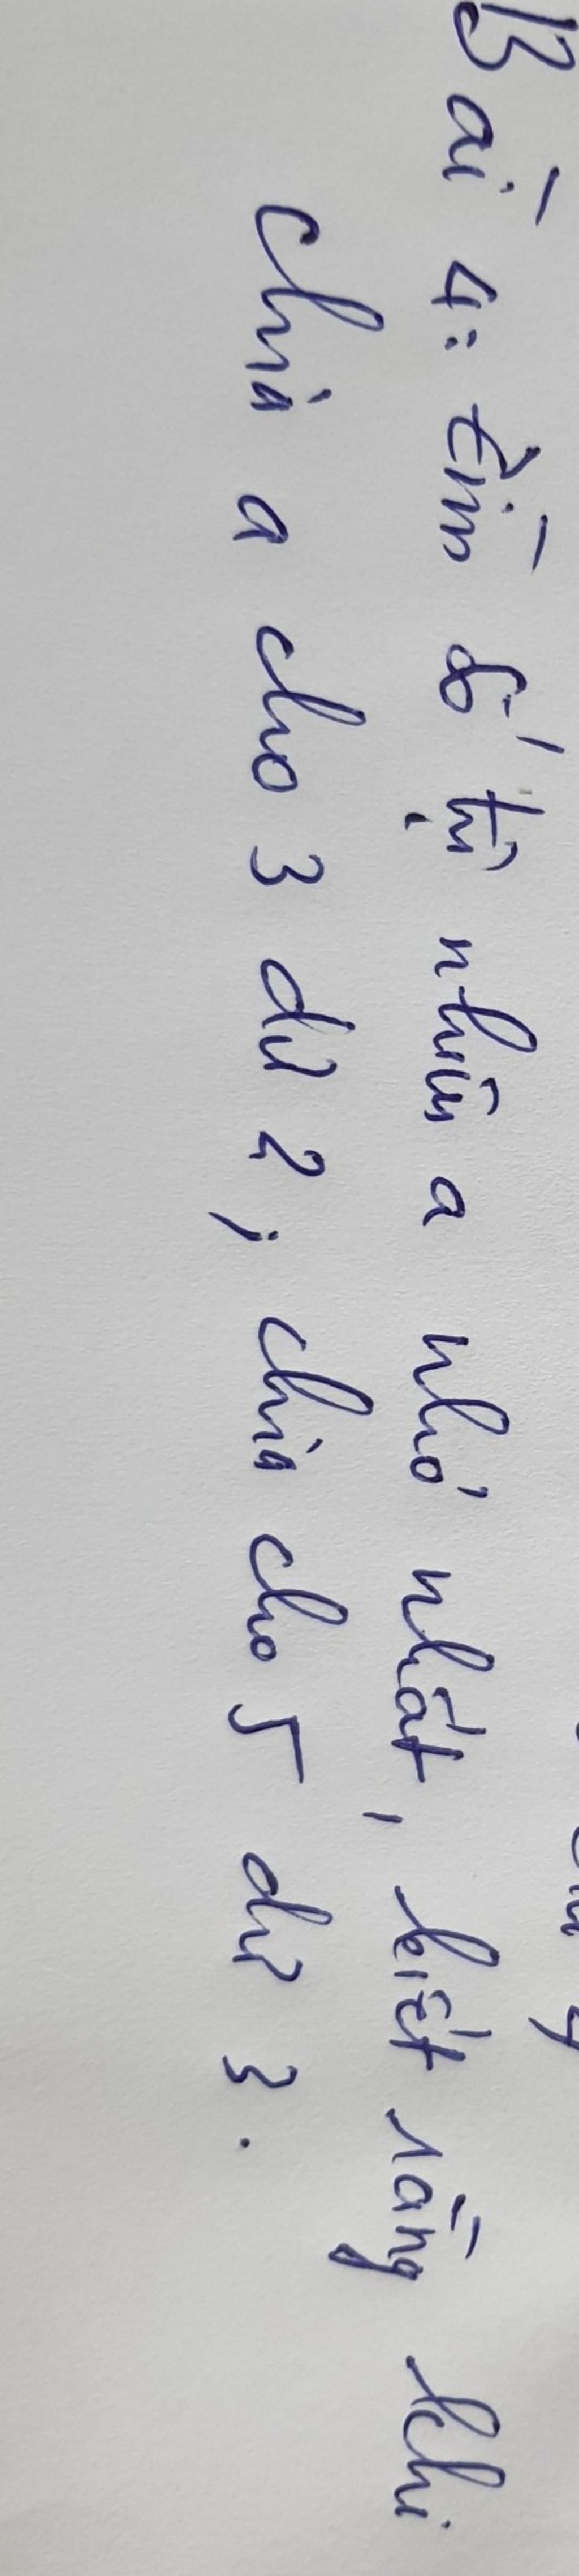 Bài 4: Tìm số tự nhiên a nhỏ nhất, biết rằng khi
chia a cho 3 dư 2; chia cho 5 dư 3.